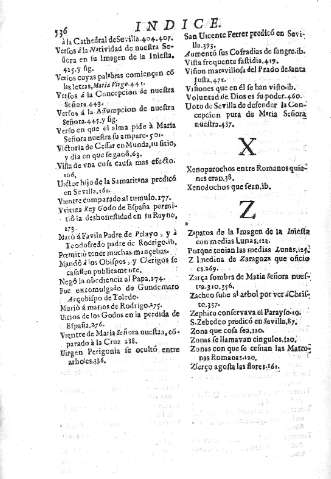 536
INDICE.
à la Cathedral de Sevilla.404.407.
Versos à la Natividad de nuestra Se-
ñora en su Imagen de la Iniesta,
425.y sig.
Versos cuyas palabras comiençen cō
las letras, Maria Virgo.442.
Versos à la Concepcion de nuestra
Señora.443.
Versos à la Assumpcion de nuestra
Señora.445.y sig.
Verso en que el alma pide à Maria
Señora nuestra su amparo.501.
Victoria de Cessar en Munda, su sitio,
y dia en que se ganò.63.
Vista de vna cosa causa mas efecto.
106.
Victer hijo de la Samaritana predicò
en Sevilla.161.
Vientre comparado al tumulo.177.
Vvitiza Rey Godo de España permi-
tiò la deshonestidad en su Reyno,
273.
Matò à Favila Padre de Pelayo, y à
Teodofredo padre de Rodrigo.ib.
Permitiò tener muchas mancebas.
Mandò à los Obispos, y Clerigos se
casassen publicamente.
Negò la obediencia al Papa.274.
Fue excomulgado de Gundemaro
Arçobispo de Toledo.
Muriò à manos de Rodrigo.275.
Vicios de los Godos en la perdida de
España.276.
Vientre de Maria Señora nuestra, cō-
parado à la Cruz 238.
Virgen Perigonia se ocultò entre
arboles.238.
San Vicente Ferrer predicò en Sevi-
lla.393.
Aumentò las Cofradias de sangre.ib.
Vista frequente fastidia.419.
Vision maravillosa del Prado de Santa
Justa.472.
Visiones que en èl se han visto.ib.
Voluntad de Dios es su poder.460.
Voto de Sevilla de defender la Concep-
cion pura de Maria Señora
nuestra.437.
X
Xenoparochos entre Romanos quie-
nes eran.38.
Xenodochos que sean.ib.
Z
Zapatos de la Imagen de la Iniesta
con medias Lunas.124.
Porque tenian las medias Lunas.125.
Zalmedina de Zaragoza que oficio
es.269.
Zarça sombra de Maria Señora nues-
tra.310.356.
Zacheo sube al arbol por ver à Chris-
to.357.
Zephiro conservava el Parayso.19.
S.Zebedeo predicò en Sevilla.87.
Zona que cosa sea.120.
Zonas se llamavan cingulos.120.
Zonas con que se ceñian las Matro-
nas Romanas.120.
Zierço agosta las flores.161.